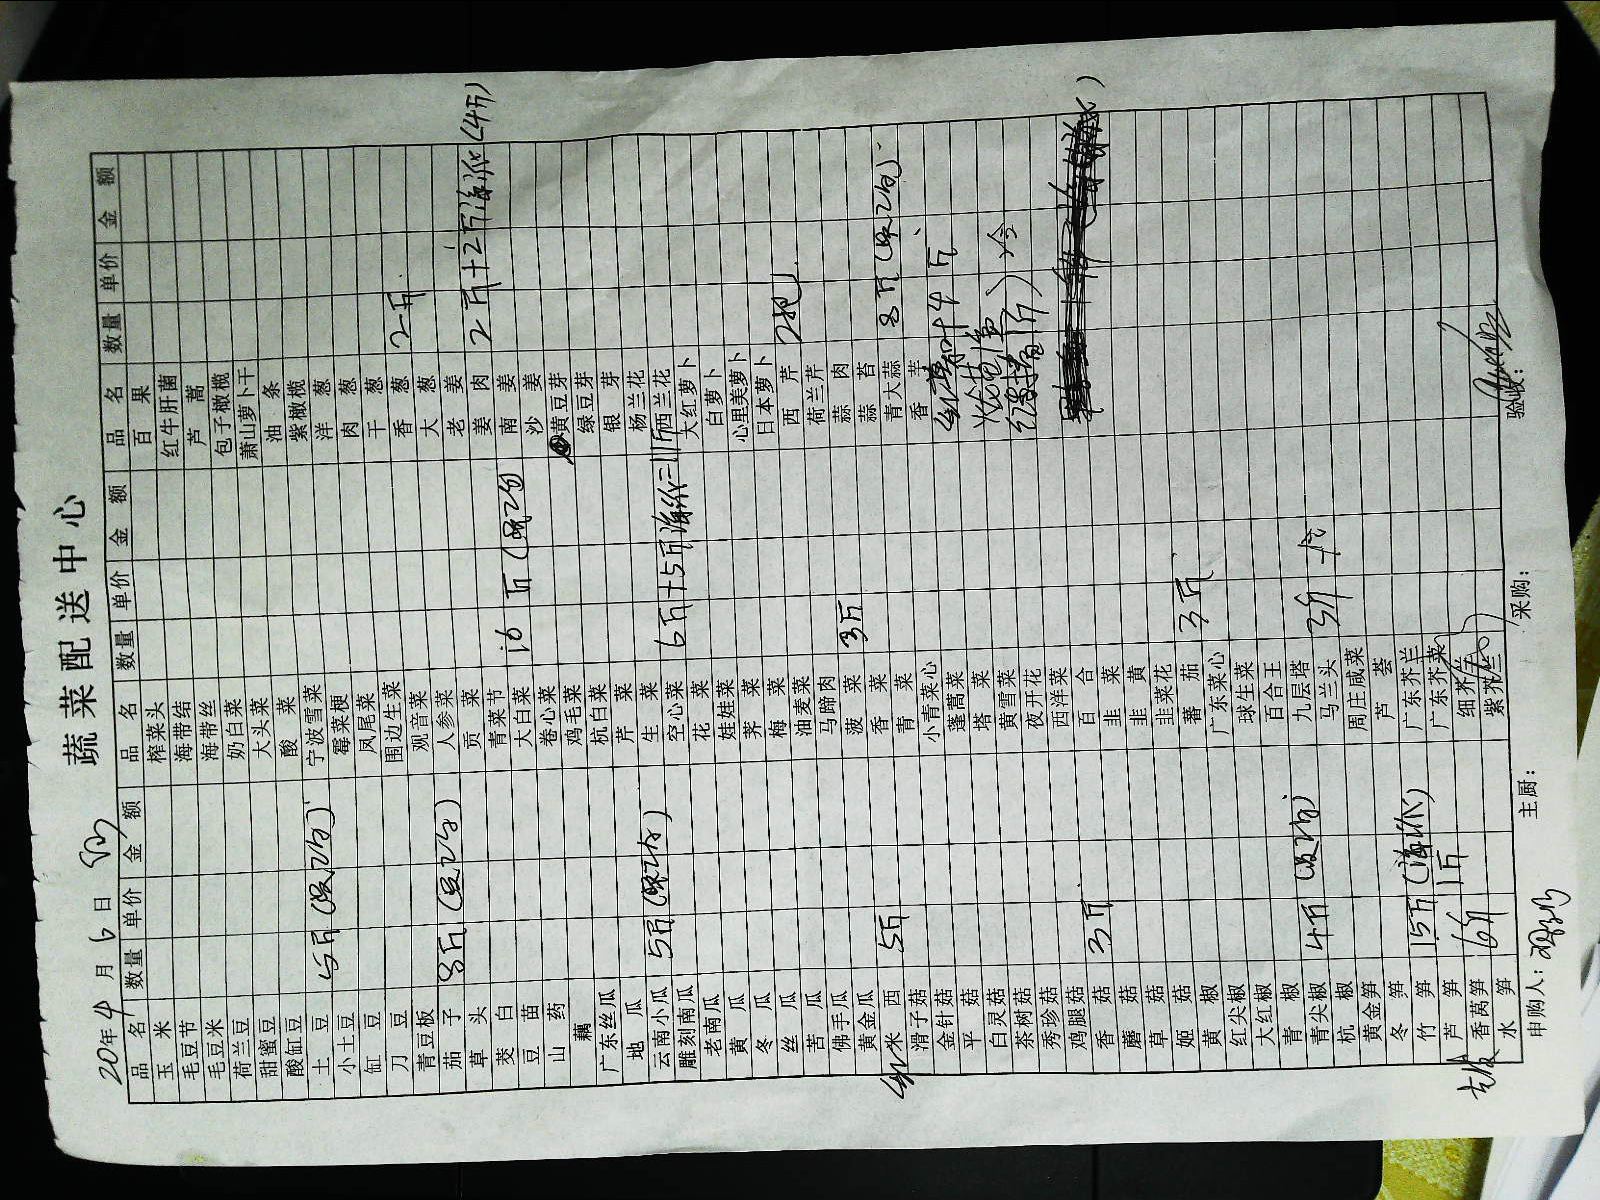 蔬菜配送中心
20 年 4 月 6 日
品名 数量 单价 金额
玉米
毛豆节
毛豆米
荷兰豆
甜蜜豆
酸缸豆
土豆 5斤
小土豆
缸豆
刀豆
青豆板
茄子 8斤
草头
茭白
豆苗
山药
藕
广东丝瓜
地瓜
云南小瓜 5斤
雕刻南瓜
老南瓜
黄瓜
冬瓜
丝瓜
苦瓜
佛手瓜
黄金瓜
红米西 5斤
滑子菇
金针菇
平菇
白灵菇
茶树菇
秀珍菇
鸡腿菇
香菇 3斤
蘑菇
草菇
姬菇
黄椒
红尖椒
大红椒
青椒
青尖椒 4斤
杭椒
黄金笋
冬笋
竹笋 15斤(海派)
芦笋 1斤
香莴笋 6斤
水笋
品名 数量 单价 金额
榨菜头
海带结
海带丝
奶白菜
大头菜
酸菜
宁波雪菜
霉菜梗
凤尾菜
围边生菜
观音菜
人参菜
贡菜
青菜节 16斤
大白菜
卷心菜
鸡毛菜
杭白菜
芹菜
生菜 6斤+5斤海派=11斤
空心菜
花菜
娃娃菜
荠菜
梅菜
油麦菜
马蹄肉
菠菜 3斤
香菜
青菜
小青菜心
蓬蒿菜
塔菜
黄雪菜
夜开花
西洋菜
百合
韭菜
韭黄
韭菜花
蕃茄 3斤
广东菜心
球生菜
百合王
九层塔
马兰头 3斤
周庄咸菜
芦荟
广东芥兰
广东芥菜
细芥兰
紫芥兰
品名 数量 单价 金额
百果
红牛肝菌
芦蒿
包子橄榄
萧山萝卜干
油条
紫橄榄
洋葱
肉葱
干葱
香葱 2斤
大葱
老姜
姜肉 2斤+2斤海派(4斤)
南姜
沙姜
黄豆芽
绿豆芽
银芽
杨兰花
西兰花
大红萝卜
白萝卜
心里美萝卜
日本萝卜
西芹 2把
荷兰芹
蒜肉
蒜苔
青大蒜 8斤
香芋
主厨：
申购人：
采购：
验收：